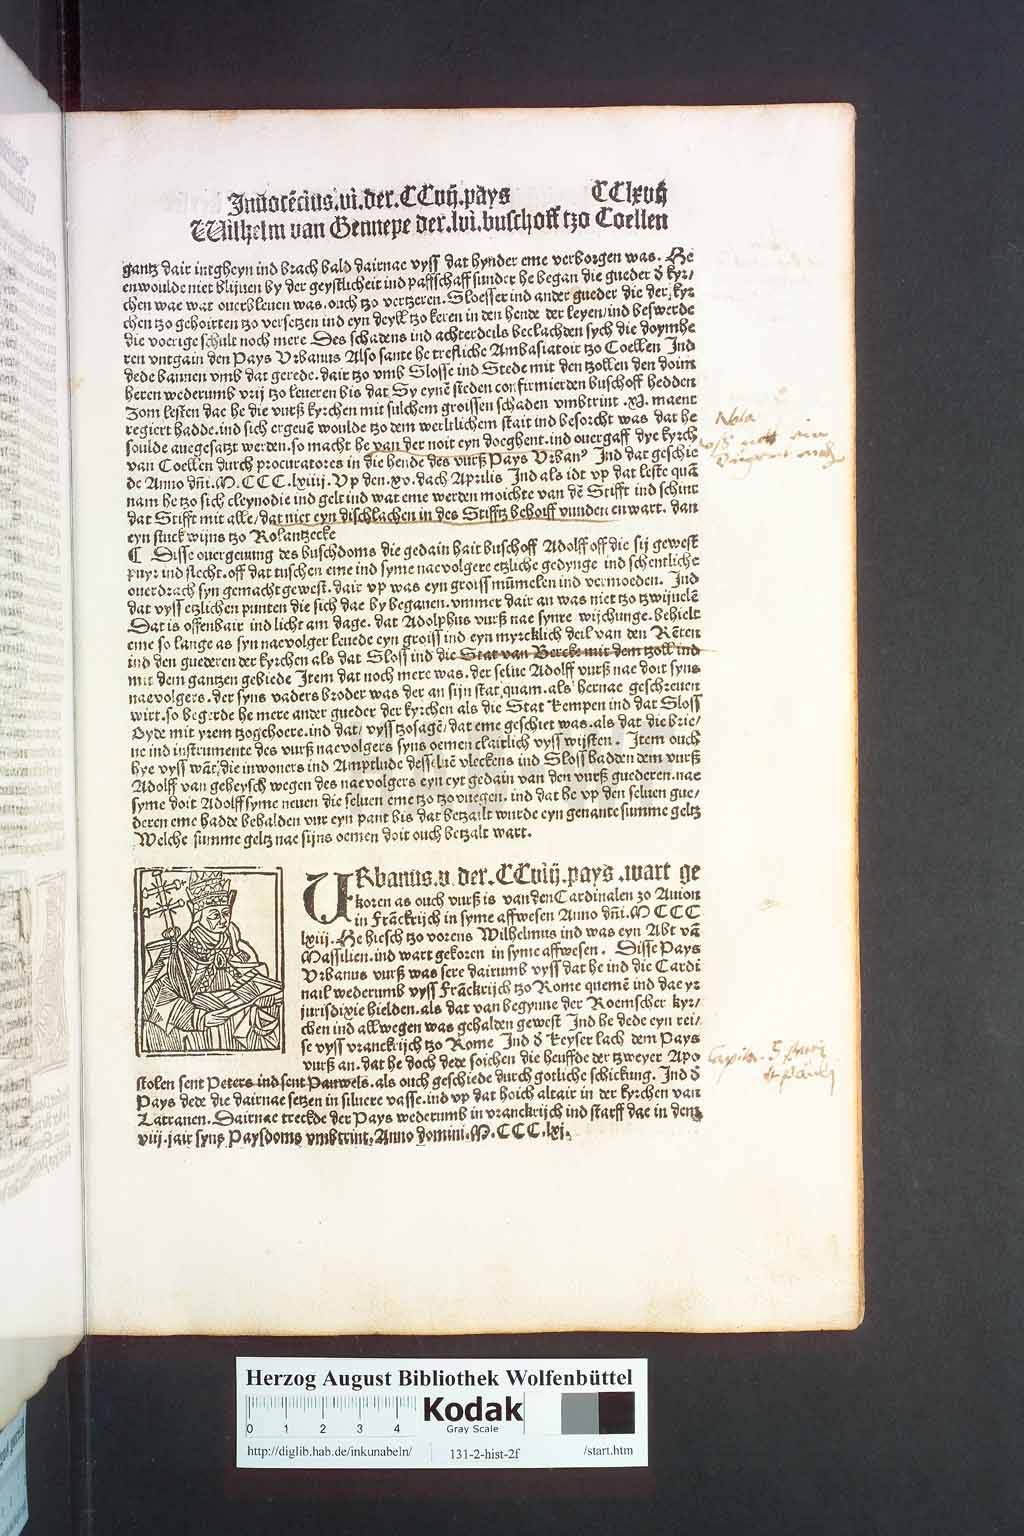 Innocẽcius.vi.der.CCvij.pays CClxvij
Wilhelm van Gennepe der.lvi.buschoff tzo Coellen
gantz dair intgheyn ind brach bald dairnae vyss dat hynder eme verborgen was. He
enwoulde niet blijuen by der geystlicheit ind paffschaff sunder he began die gueder d' kyr/
chen wae wat ouerbleuen was.ouch tzo vertzeren.Sloesser ind ander gueder die der kyr
chen tzo gehoirten tzo versetzen ind eyn deyll tzo keren in den hende der leyen/ind beswerde
die voerige schult noch mere Des schadens ind achterdeils beclachden sych die doymhe
ren vntgain den Pays Vrbanus Also sante he trefliche Ambasiatoir tzo Coellen Ind
dede bannen vmb dat gerede.dair tzo vmb Slosse ind Stede mit den tzollen den doim
heren wederumb vrij tzo leueren bis dat Sy eynẽ steden confirmierden buschoff hedden
Zom lesten dae he die vurß kyrchen mit sulchem groissen schaden vmbtrint .xj. maent
regiert hadde.ind sich ergeuẽ woulde tzo dem werltlichem stait ind besorcht was dat he
soulde angesatzt werden.so macht he van der noit eyn doeghent.ind ouergaff dye kyrch
van Coellen durch procuratores in die hende des vurß Pays Vrban9 Ind dat geschie
de Anno dñi.M.CCC.lxiiij.Vp den.xv.dach Aprilis Ind als idt vp dat leste quã
nam he tzo sich cleynodie ind gelt ind wat eme werden moichte van dẽ Stifft ind schint
dat Stifft mit alle/dat niet eyn dischlachen in des Stifftz behoiff vunden enwart. dan
eyn stuck wijns tzo Rolantzecke
¶ Disse ouergeuung des buschdoms die gedain hait buschoff Adolff off die sij gewest
puyr ind slecht.off dat tuschen eme ind syme naevolgere etzliche gedynge ind schentliche
ouerdrach syn gemacht gewest.dair vp was eyn groiss mũmelen ind vermoeden. Ind
dat vyss etzlichen punten die sich dae by begauen.vmmer dair an was niet tzo tzwijuelẽ
Dat is offenbair ind licht am dage.dat Adolphus vurß nae synre wijchunge.behielt
eme so lange as syn naevolger leuede eyn groiss ind eyn myrcklich deil van den Rẽten
ind den guederen der kyrchen als dat Sloss ind die Stat van Bercke mit dem tzoll ind
mit dem gantzen gebiede Item dat noch mere was.der selue Adolff vurß nae doit syns
naevolgers.der syns vaders broder was der an sijn stat quam.als hernae geschreuen
wirt.so begerde he mere ander gueder der kyrchen als die Stat Kempen ind dat Sloss
Oyde mit yrem tzogehoere.ind dat/ vyss tzosagẽ/dat eme geschiet was.als dat die brie/
ue ind instrumente des vurß naevolgers syns oemen clairlich vyss wijsten. Item ouch
hye vyss wãt/die inwoners ind Amptlude desseluẽ vleckens ind Sloss hadden dem vurß
Adolff van geheysch wegen des naevolgers eyn eyt gedain van den vurß guederen.nae
syme doit Adolff syme neuen die seluen eme tzo tzovuegen.ind dat he vp den seluen gue/
deren eme hadde behalden vur eyn pant bis dat betzailt wurde eyn genante summe geltz
Welche summe geltz nae sijns oemen doit ouch betzalt wart.
URbanus.v.der.CCviij.pays.wart ge
koren as ouch vurß is van den Cardinalen zo Auion
in Frãckrijch in syme affwesen Anno dñi.M CCC
lxiii.He hiesch tzo vorens Wilhelmus ind was eyn Abt vã
Massilien.ind wart gekoren in syme affwesen. Disse Pays
Vrbanus vurß was sere dairumb vyss dat he ind die Cardi
nail wederumb vyss Frãckrijch tzo Rome quemẽ ind dae yr
jurisdixie hielden.als dat van begynne der Roemscher kyr/
chen ind allwegen was gehalden gewest Ind he dede eyn rei/
se vyss vranckrijch tzo Rome Ind d' keyser lach dem Pays
vurß an.dat he doch dede soichen die heuffde der tzweyer Apo
stolen sent Peters ind sent Pauwels.als ouch geschiede durch gotliche schickung. Ind d'
Pays dede die dairnae setzen in siluere vasse.ind vp dat hoich altair in der kyrchen van
Latranen.Dairnae treckde der Pays wederumb in vranckrijch ind starff dae in dem
viij.jair synß Paysdoms vmbtrint,Anno domini.M.CCC.lxj.
Nota
Capita. S Petri
et Pauli
Herzog August Bibliothek Wolfenbüttel
0 1 2 3 4
Kodak
Gray Scale
http://diglib.hab.de/inkunabeln/ 131-2-hist-2f /start.htm